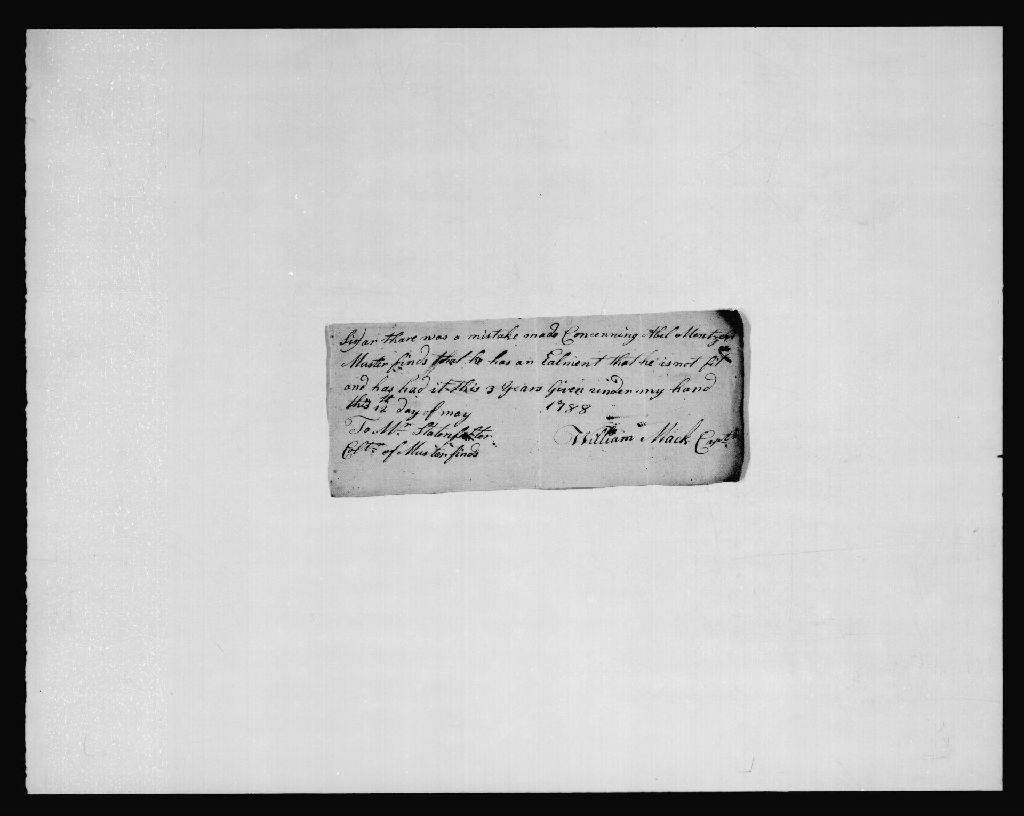 Sir far thare was a mistake made Concerning Abil
Muster finds that he has an Ealment that he is not fit
and has had it this 3 Years Given under my hand
this 12th day of may 1788
To Mr.
Coltr. of Muster finds
William Mack Captn.